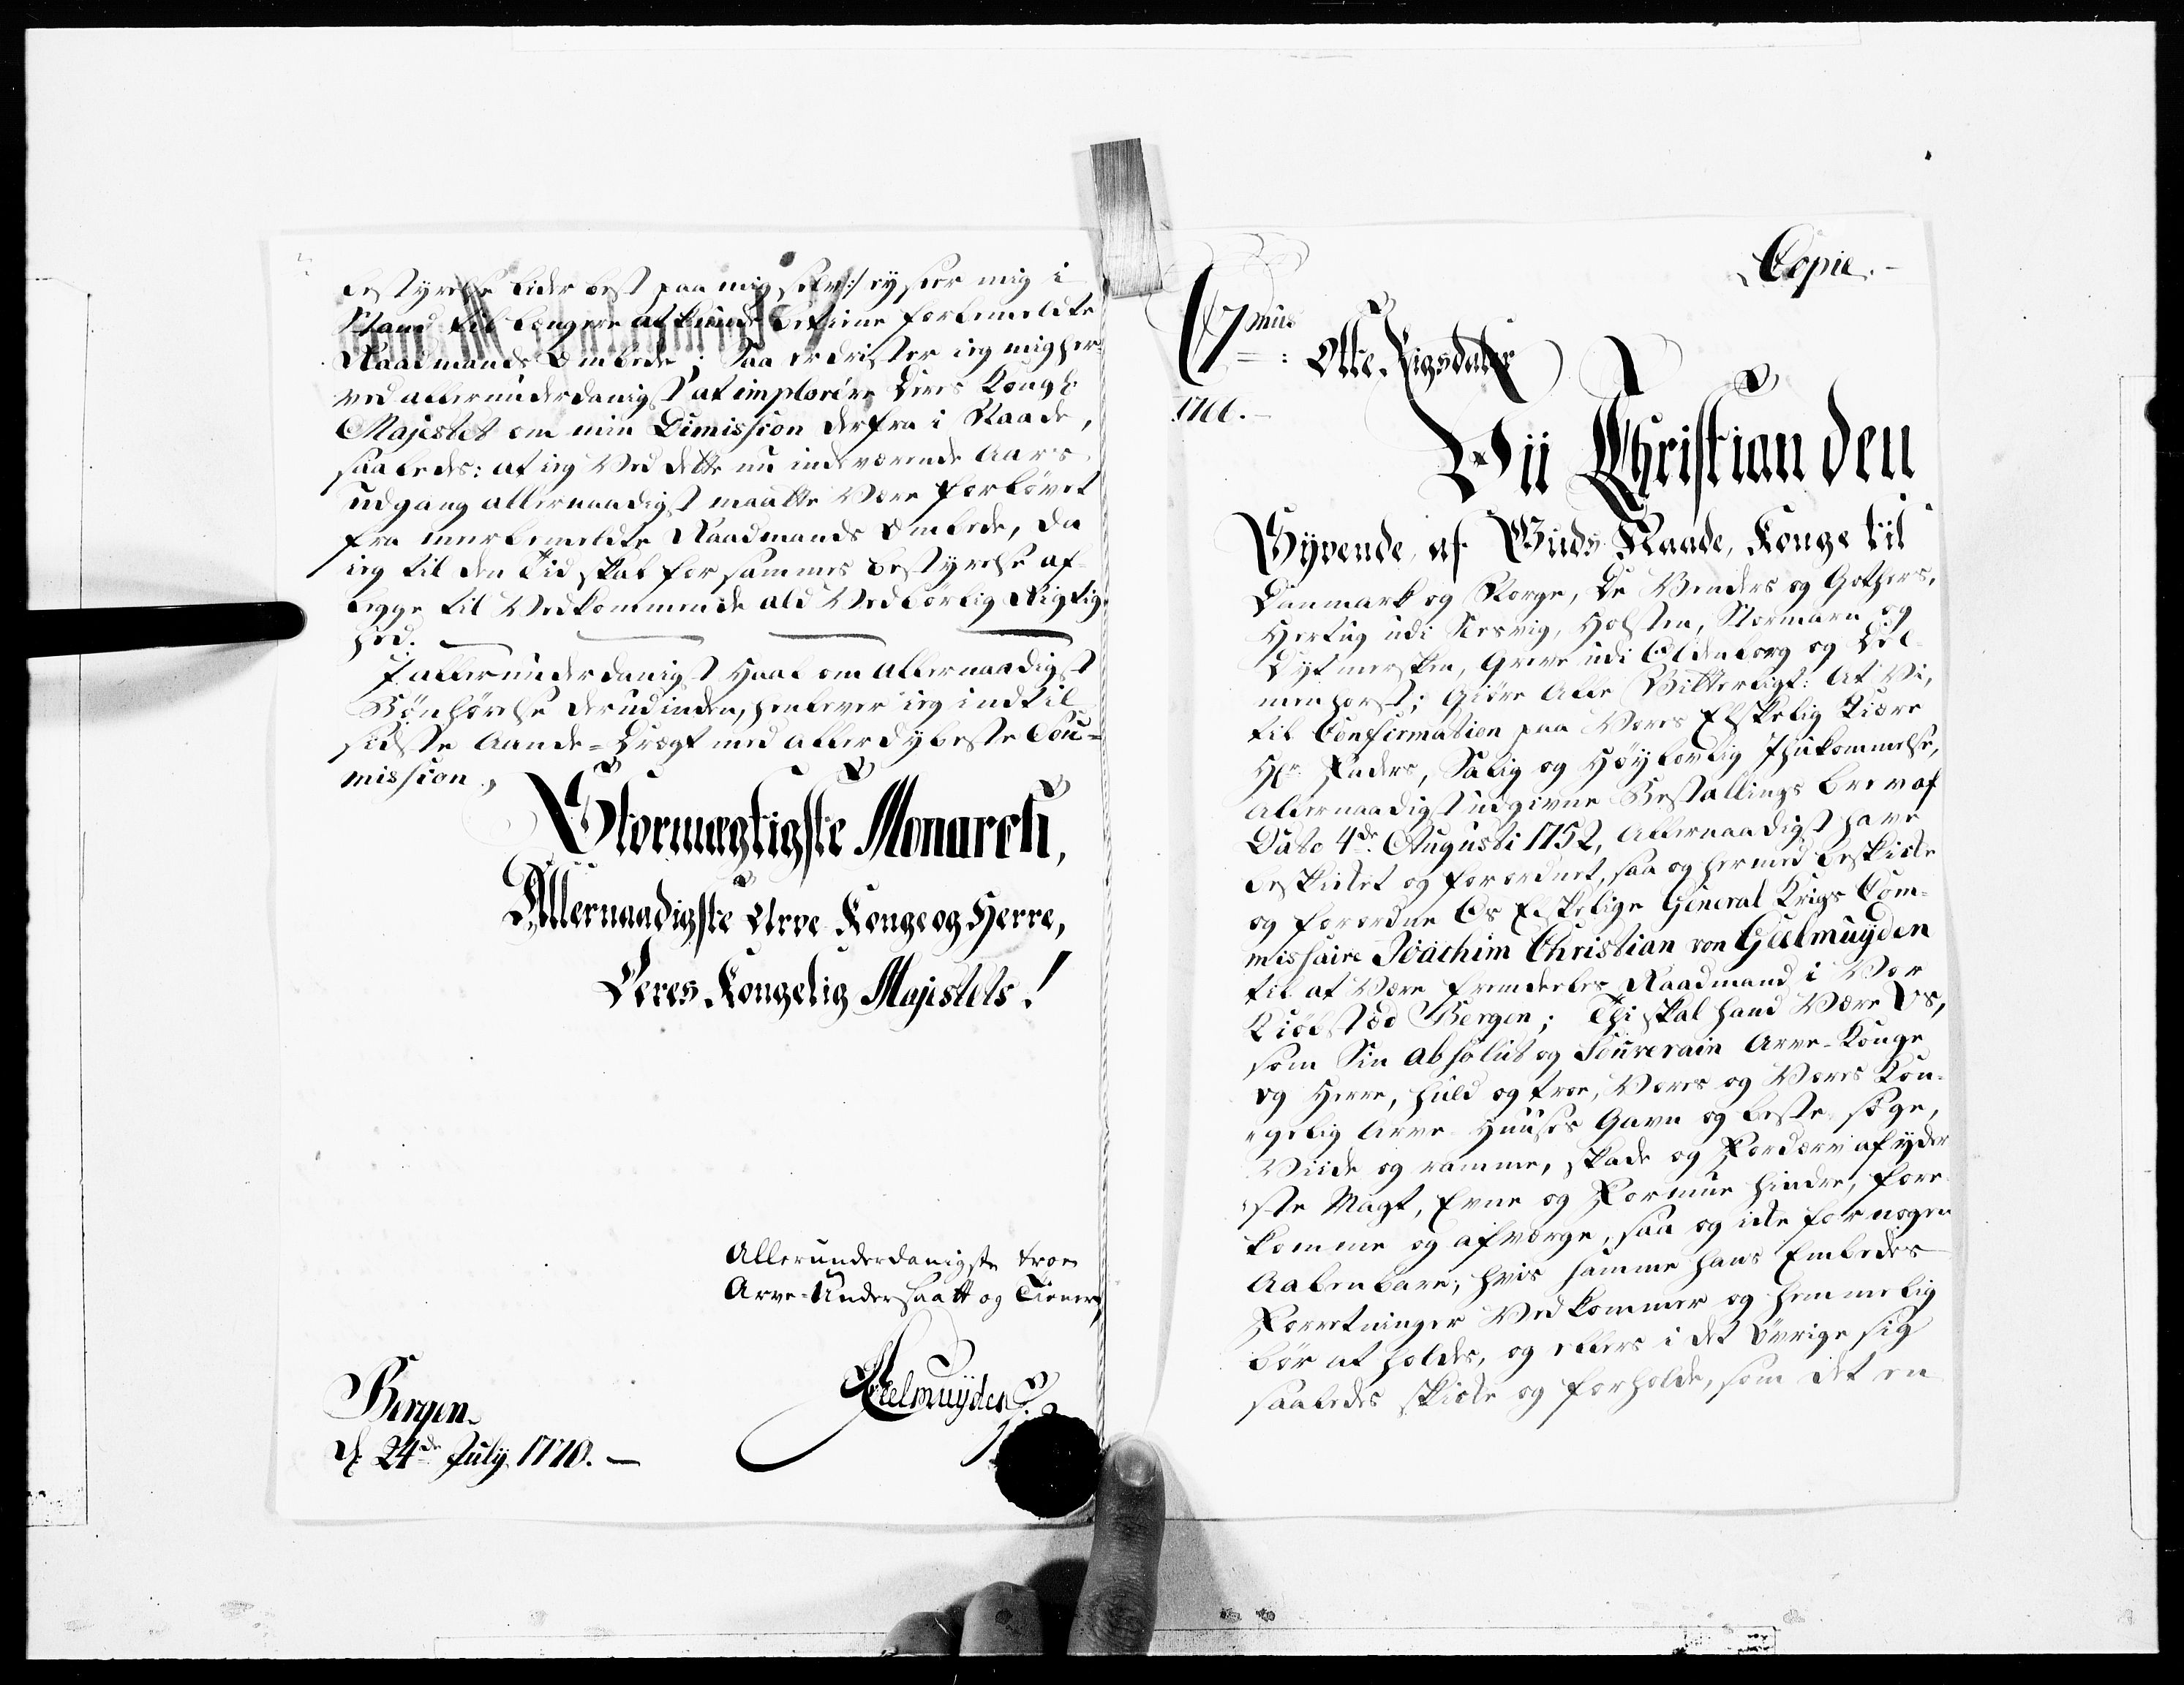 bestyrelse lider best paa mig self :/ ey seer mig i
Stand til længere at kunde betiene forbemeldte
Raadmands Embede; Saa erdrister ieg mig her-
ved allerunderdanigst at implorere Deres Kongl:
Majestet om min Dimission derfra i Naade,
saaledes: at ieg Ved dette nu indeværende Aars
udgang allernaadigst maatte Være forlövet
fra meerbemeldte Raadmands Embede, da
ieg til den Tid skal for sammes bestyrelse af-
legge til Vedkommende ald Vedbörlig Rigtig-
hed.
I allerunderdanigst Haab om allernaadigst
Bönhörelse derudinden, henlever ieg indtil
sidste Aande-Drægt med allerdybeste Sou-
mission,
Stormægtigste Monarch,
Allernaadigste Arve Konge og Herre,
Deres Kongelig Majestets!
Allerunderdanigste troe
Arve-Undersaatt og Tiener
Geelmuyden
Bergen
d. 24de July 1770.
Copie.
C7mus
Otte Rigsdaler
1766.
Vii Christian den
Syvende, af Guds Naade, Konge til
Danmark og Norge, De Venders og Gothers,
Hertug udi Slesvig, Holsten, Stormarn og
Dytmersken, Greve udi Oldenborg og Del-
menhorst; Giöre Alle Vitterligt: At Vi,
til Confirmation paa Vores Elskelig Kiære
Hr. Faders, Salig og Höylovlig Ihukommelse,
Allernaadigst udgivne Bestallings brev af
Dato 4de Augusti 1752, Allernaadigst have
beskikket og forordnet, saa og hermed beskikke
og forordne Os Elskelige General Krigs Com-
missaire Joachim Christian von Geelmuyden
til at Være fremdeeles Raadmand i Vor
Kiöbsted Bergen; Thi skal hand Være Os,
som Sin absolut og Souverain Arve-Konge
og Herre, huld og troe, Vores og Vores Kon-
gelig Arve Huuses Gavn og beste söge,
Viide og ramme, skade og Fordærv af yder
ste Magt, Evne og Formue hindre, fore
komme og afværge, saa og ikke for nogen
Aabenbare, hvis samme hans Embedes
Forretninger Vedkommer og hemmelig
bör at holdes, og ellers i det övrige sig
saaledes skikke og forholde, som det en